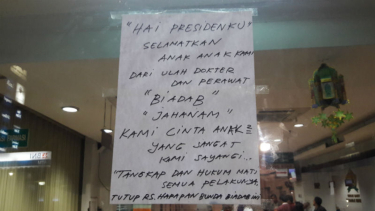 "HAI PRESIDENKU"
SELAMATKAN
ANAK ANAK KAMI
DARI ULAH DOKTER
DAN PERAWAT
"BIADAB"
"JAHANAM"
KAMI CINTA ANAK2
YANG SANGAT
KAMI SAYANGI..
"TANGKAP DAN HUKUM MATI
SEMUA PELAKUNYA
TUTUP RS. HARAPAN BUNDA BIADAB